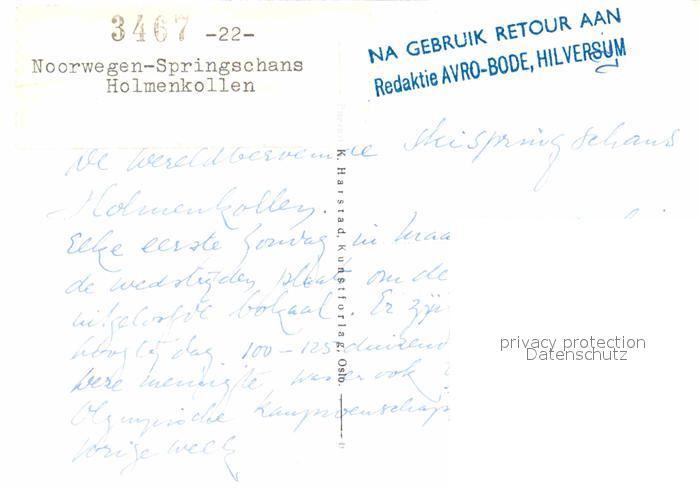 3467 -22-
Noorwegen-Springschans
Holmenkollen
NA GEBRUIK RETOUR AAN
Redaktie AVRO-BODE, HILVERSUM
De wereldberoemde skispringschans
Holmenkollen.
Elke eerste zondag in maa
de wedstrijden plaats om de
uitgeloofde bokaal. Er zijn
hoogtij dag 100-125 duizend
menigte was er ook
Olympische kampioenschap
vorige week
K. Harstad, Kunstforlag, Oslo.
privacy protection
Datenschutz